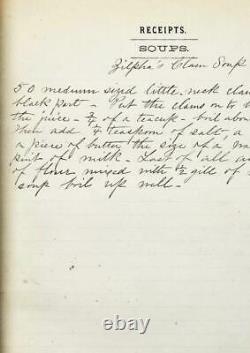 RECEIPTS.
SOUPS.
Zilpha's Clam Soup
50 medium sized little neck clam
black part - Put the clams on to
the juice - 3/4 of a teacup - boil abo
then add 1/4 teaspoon of salt, a
a piece of butter the size of a
pint of milk - Last of all
of flour mixed with 1/2 gill of
soup boil up well -
ebay
www.ebay.com